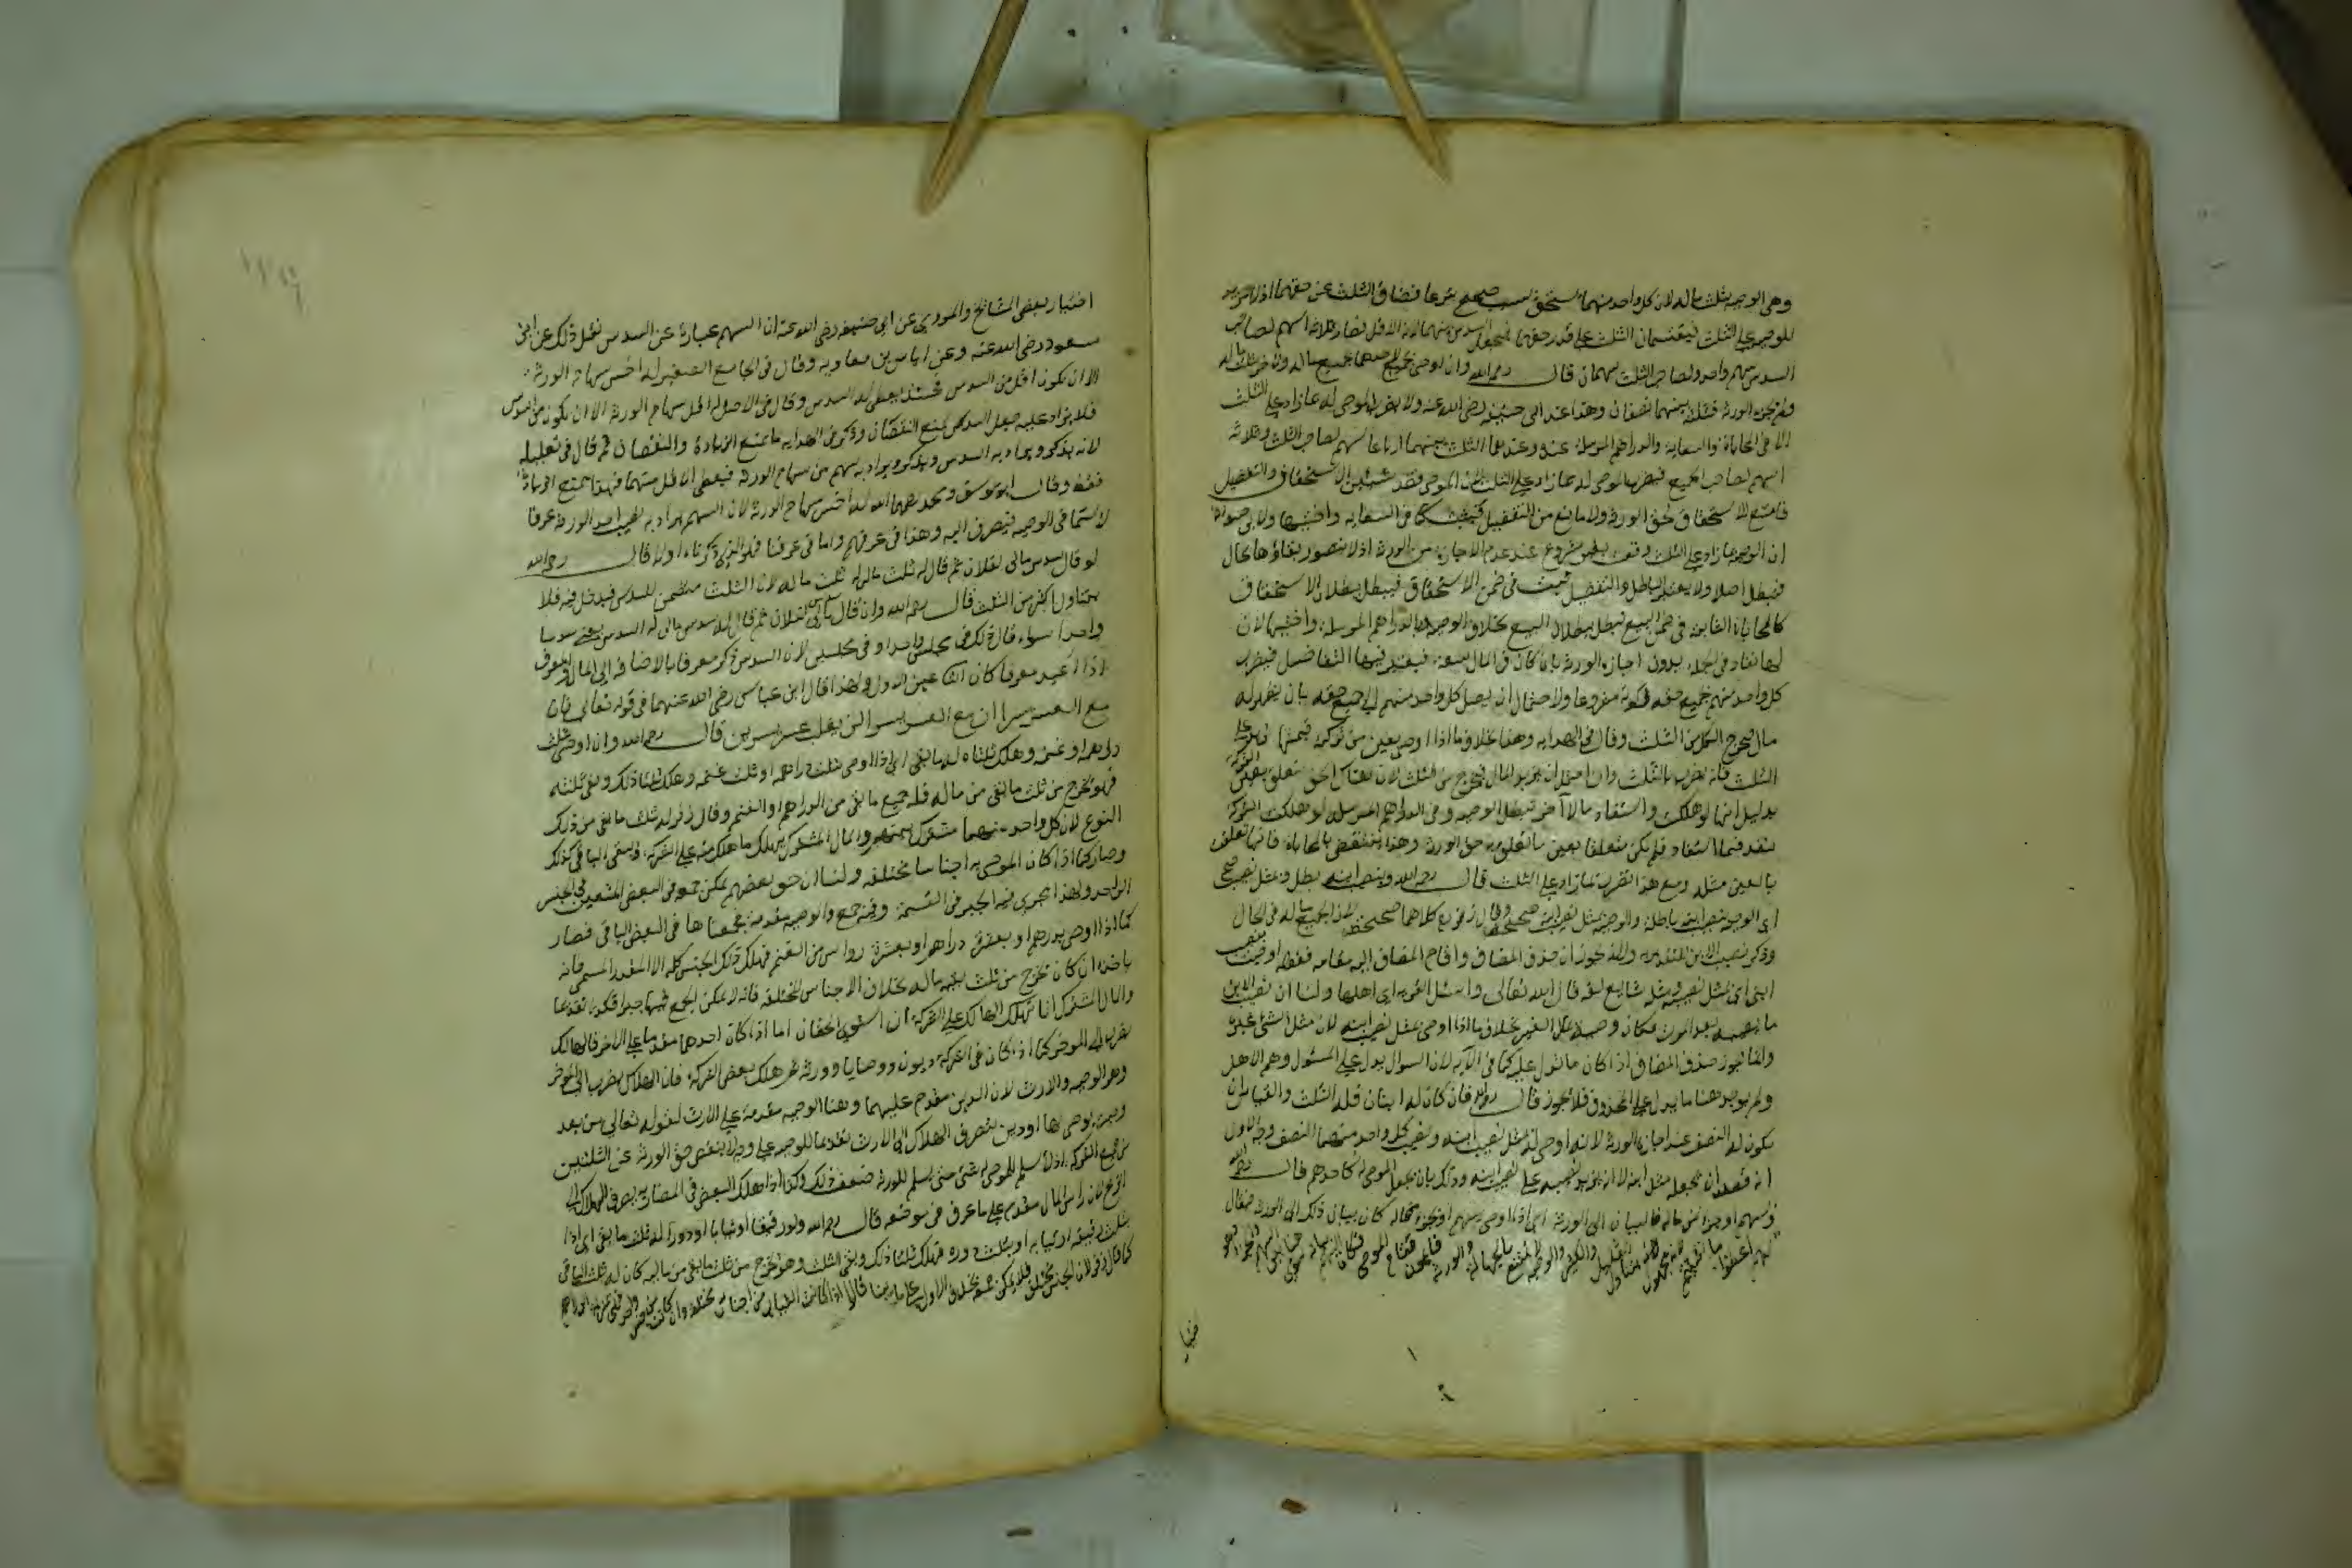 وهي الوصية بثلث ماله لان كل واحد منهما يستحق بسبب صحيح شرعا فضاق الثلث عن حقهما اذ لا مزيد
للوصية على الثلث فيقتسمان الثلث على قدر حقهما فيجعل السدس بينهما لانه الاقل فصار ثلاثة اسهم لصاحب
السدس سهم واحد ولصاحب الثلث سهمان قال رحمه الله وان اوصى لاحدهما بجميع ماله ولاخر بثلث ماله
ولم تجز الورثة فثلثه بينهما نصفان وهذا عند ابي حنيفة رضي الله عنه ولا يضرب الموصى له بما زاد على الثلث
الا في المحاباة والسعاية والدراهم المرسلة عنده وعندهما الثلث بينهما ارباعا سهم لصاحب الثلث وثلاثة
اسهم لصاحب الجميع فيضرب الموصى له بما زاد على الثلث لهما ان الموصي قصد شيئين الاستحقاق والتفضيل
فامتنع الاستحقاق لحق الورثة ولا مانع من التفضيل فيثبت كما في السعاية واختيها ولابي حنيفة
ان الوصية بما زاد على الثلث وقعت بغير مشروع عند عدم الاجازة من الورثة اذ لا يتصور نفاذها بحال
فتبطل اصلا ولا يعتبر الباطل والتفضيل ثبت في ضمن الاستحقاق فيبطل ببطلان الاستحقاق
كالمحاباة الثابتة في ضمن البيع تبطل ببطلان البيع بخلاف الوصية بالدراهم المرسلة واختيها لان
لها نفاذا في الجملة بدون اجازة الورثة بان كان في المال سعة فيعتبر فيها التفاضل فيضرب
كل واحد منهم بجميع حقه لكونه مشروعا ولاحتمال ان يصل كل واحد منهم الى جميع حقه بان يظهر له
مال فيخرج الكل من الثلث وقال في الهداية وهذا بخلاف ما اذا اوصى بعين من تركته قيمتها تزيد على
الثلث فانه يضرب بالثلث وان احتمل ان يزيد المال فيخرج من الثلث لان هناك الحق تعلق بعين التركة
بدليل انها لو هلكت واستفاد مالا آخر تبطل الوصية وفي الدراهم المرسلة لو هلكت التركة
تنفذ فيما استفاد فلم يكن متعلقا بعين ما تعلق به حق الورثة وهذا ينتقض بالمحاباة فانها تعلقت
بالعين مثله ومع هذا يضرب بما زاد على الثلث قال رحمه الله وبنصيب ابنه بطل وبمثل نصيبه صح
اي الوصية بنصيب ابنه باطلة والوصية بمثل نصيب ابنه صحيحة وقال زفر كلاهما صحيحة لان الجميع ماله في الحال
وذكر نصيب الابن للتقدير به ولانه يجوز ان حذف المضاف واقام المضاف اليه مقامه فقوله اوصيت بنصيب
ابني اي بمثل نصيبه ومثله شايع لغة قال الله تعالى واسئل القرية اي اهلها ولنا ان نصيب الابن
ما يصيبه بعد الموت فكان وصية بمال الغير بخلاف ما اذا اوصى بمثل نصيب ابنه لان مثل الشئ غيره
وانما يجوز حذف المضاف اذا كان ما يدل عليه كما في الآية لان السؤال يدل على المسئول وهو الاهل
ولم يوجد هنا ما يدل على المحذوف فلا يجوز قال رحمه الله فان كان له ابنان فله الثلث والقياس ان
يكون له النصف عند اجازة الورثة لانه اوصى له بمثل نصيب ابنه ونصيب كل واحد منهما النصف وجه الاول
انه قصد ان يجعله مثل ابنه لا ان يزيد نصيبه على نصيب ابنه وذلك بان يجعل الموصى له كاحدهم قال رحمه الله
وبسهم او جزء من ماله فالبيان الى الورثة اي اذا اوصى بسهم او بجزء من ماله كان بيان ذلك الى الورثة فيقال
لهم اعطوه ما شئتم لانه مجهول يتناول القليل والكثير والوصية لا تمتنع بالجهالة والورثة قائمون مقام الموصي فكان اليهم بيانه
فتيا
اختيار بعض المشايخ والمروي عن ابي حنيفة رضي الله عنه ان السهم عبارة عن السدس نقل ذلك عن ابن
مسعود رضي الله عنه وعن اياس بن معاوية وقال في الجامع الصغير له اخس سهام الورثة
الا ان يكون اقل من السدس فحينئذ يعطى له السدس وقال في الاصل له اقل سهام الورثة الا ان يكون من السدس
فلا يزاد عليه جعل السدس لمنع النقصان وذكر في الهداية ما يمنع الزيادة والنقصان ثم قال في تعليله
لانه يذكر ويراد به السدس ويذكر ويراد به سهم من سهام الورثة فيعطى الاقل منهما فهذا يمنع الزيادة
فقط وقال ابو يوسف ومحمد رحمهما الله له اخس سهام الورثة لان السهم يراد به نصيب احد الورثة عرفا
لا سيما في الوصية فيصرف اليه وهذا في عرفهم واما في عرفنا فهو الذي ذكرناه اولا قال رحمه الله
لو قال سدس مالي لفلان ثم قال له ثلث مالي له ثلث ماله لان الثلث متضمن للسدس فيدخل فيه فلا
يتناول اكثر من الثلث قال رحمه الله وان قال سدس مالي لفلان ثم قال له سدس مالي له السدس يعني سدسا
واحدا سواء قال ذلك في مجلس واحد او في مجلسين لان السدس ذكر معرفا بالاضافة الى المال والمعرف
اذا اعيد معرفا كان الثاني عين الاول ولهذا قال ابن عباس رضي الله عنهما في قوله تعالى فان
مع العسر يسرا ان مع العسر يسرا لن يغلب عسر يسرين قال رحمه الله وان اوصى بثلث
دراهمه او غنمه وهلك ثلثاه له ما بقي اي اذا اوصى بثلث دراهمه او ثلث غنمه وهلك ثلثا ذلك وبقي ثلثه
فهو يخرج من ثلث ما بقي من ماله فله جميع ما بقي من الدراهم والغنم وقال زفر له ثلث ما بقي من ذلك
النوع لان كل واحد منهما مشترك بينهم والمال المشترك يهلك ما هلك منه على الشركة ويبقى الباقي كذلك
وصار كما اذا كان الموصى به اجناسا مختلفة ولنا ان حق بعضهم يمكن جمعه في البعض المتعين في الجنس
الواحد ولهذا يجري فيه الجبر في القسمة وفيه جمع والوصية مقدمة فجمعناها في البعض الباقي فصار
كما اذا اوصى بدرهم او بعشرة دراهم او بعشرة رؤاس من الغنم فهلك ذلك الجنس كله الا القدر المسمى فانه
ياخذه ان كان يخرج من ثلث بقية ماله بخلاف الاجناس المختلفة فانه لا يمكن الجمع فيها جبرا فكذا تقديما
والمال المشترك انما يهلك الهالك على الشركة ان استوى الحقان اما اذا كان احدهما مقدما على الاخر فالهالك
يصرف الى المؤخر كما اذا كان في التركة ديون ووصايا وورثة ثم هلك بعض التركة فان الهلاك يصرف الى المؤخر
وهو الوصية والارث لان الدين مقدم عليهما وهنا الوصية مقدمة على الارث لقوله تعالى من بعد
وصية يوصى بها او دين فيصرف الهلاك الى الارث تقديما للوصية على وجه لا ينقص حق الورثة عن الثلثين
من جميع التركة اذ لا يسلم للموصى له شئ حتى يسلم للورثة ضعف ذلك وكذا اذا هلك البعض في المضاربة يصرف الهلاك الى
الربح لان راس المال مقدم على ما عرف في موضعه قال رحمه الله ولو رقيقا او ثيابا او دورا له ثلث ما بقي اي اذا
بثلث رقيقه او ثيابه او بثلث دوره فهلك ثلثا ذلك وبقي الثلث وهو يخرج من ثلث ما بقي من ماله كان له ثلث الباقي
كما قال زفر لان الجنس مختلف فلا يمكن جمعه بخلاف الاول على ما بينا قالوا هذا اذا كانت الثياب من اجناس مختلفة وان كانت من جنس واحد فهي بمنزلة الدراهم